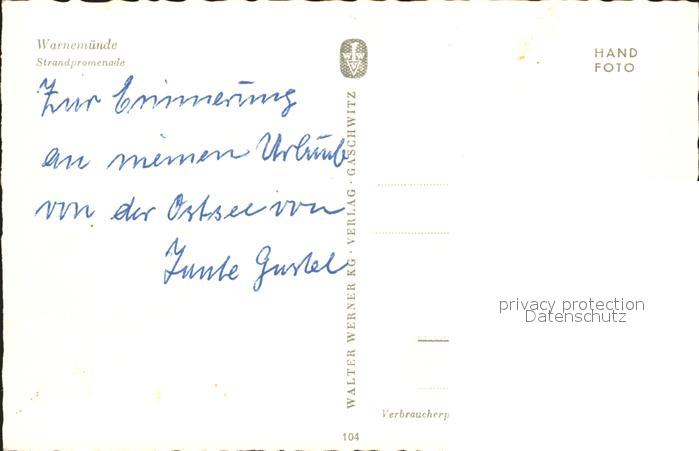 Warnemünde
Strandpromenade
HAND
FOTO
Zur Erinnerung
an meinen Urlaub
von der Ostsee von
Tante Gustel
WALTER WERNER KG · VERLAG · GASCHWITZ
privacy protection
Datenschutz
Verbraucherp
104